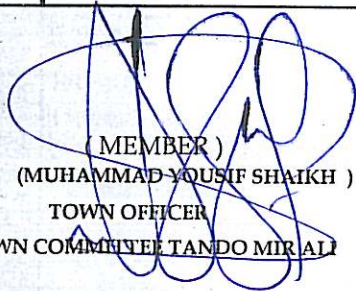 ( MEMBER )
(MUHAMMAD YOUSIF SHAIKH )
TOWN OFFICER
WN COMMITTEE TANDO MIR ALI